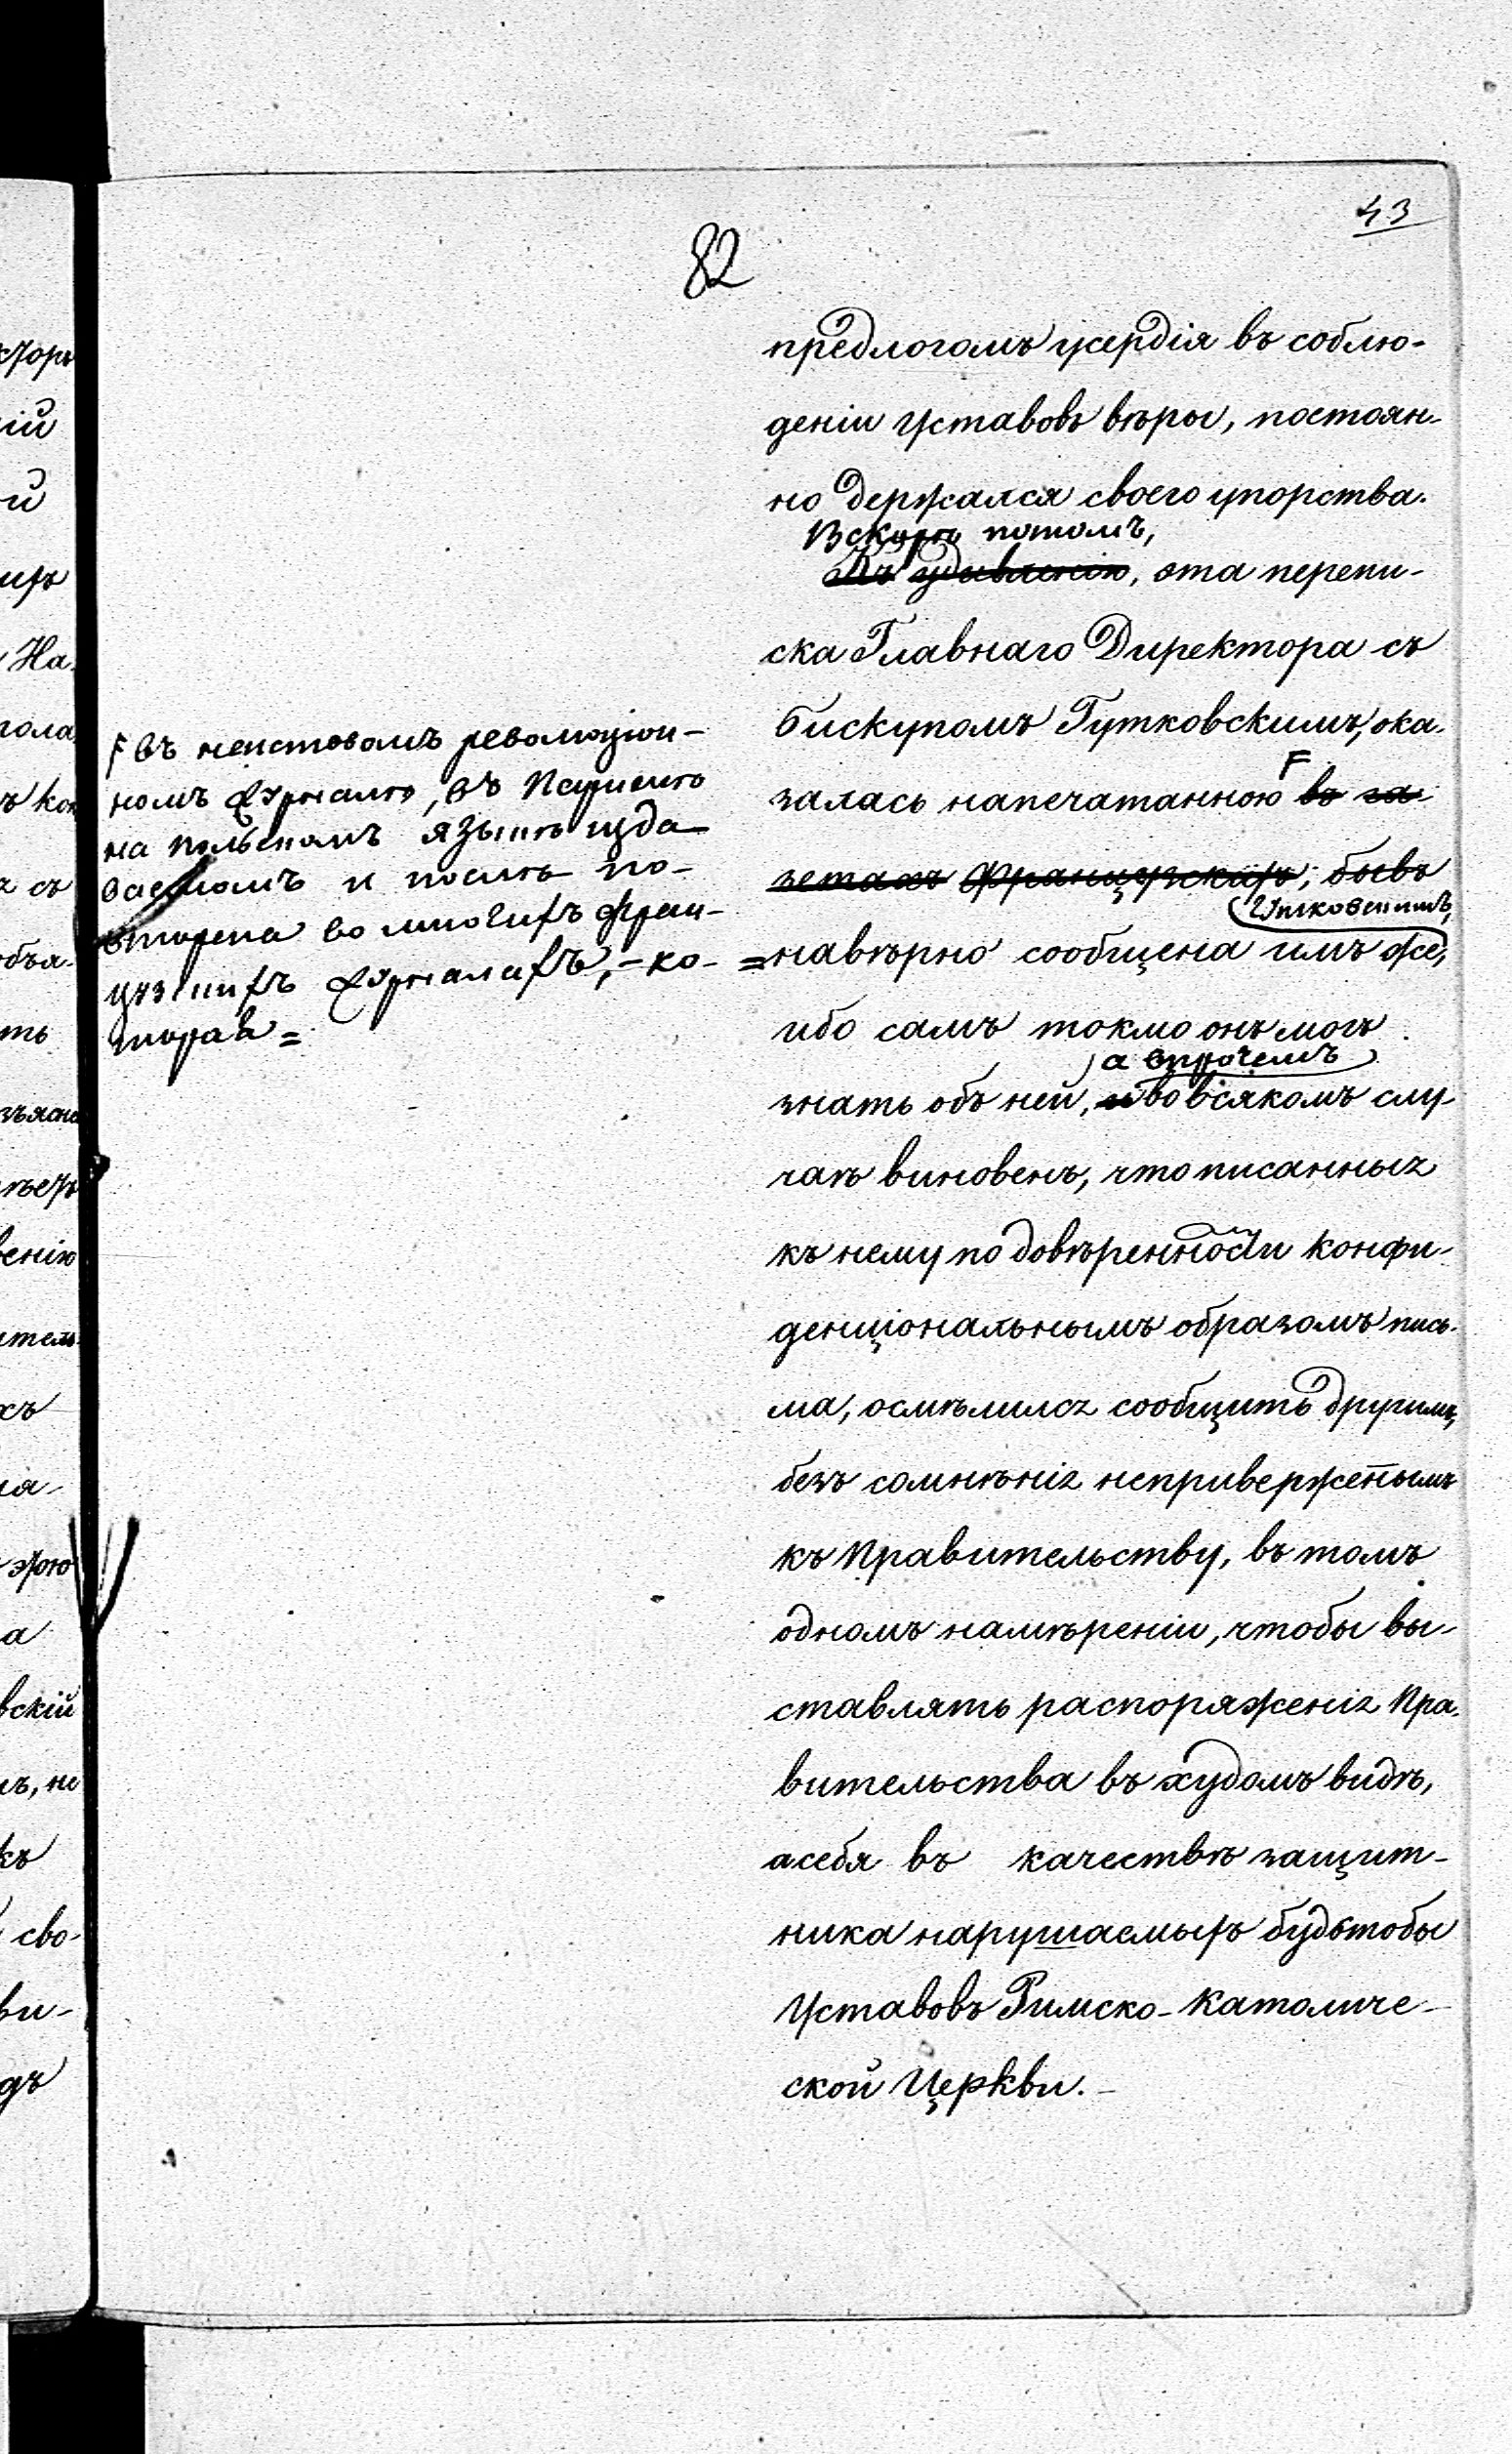 43
82
предлогомъ усердія въ соблю-
деніи уставовъ вѣры, постоян-
но держался своего упорства.
Вскорѣ потомъ,
Къ удивленію, эта перепи-
ска Главнаго Директора съ
бискупомъ Гутковскимъ, ока-
залась напечатанною F въ га-
зетахъ Французскихъ; бывъ
Гутковскимъ,
=навѣрно сообщена имъ же,
ибо самъ токмо онъ могъ
а впрочемъ
знать объ ней, и во всякомъ слу-
чаѣ виновенъ, что писанныя
къ нему по довѣренности конфи-
денціональнымъ образомъ пись-
ма, осмѣлился сообщить другимъ,
безъ сомнѣнія неприверженымъ
къ Правительству, въ томъ
одномъ намѣреніи, чтобы вы-
ставлять распоряженія Пра-
вительства въ худомъ видѣ,
а себя въ качествѣ защит-
ника нарушаемыхъ будьтобы
Уставовъ Римско-Католиче-
ской Церкви.-
F въ неистовомъ революціон-
номъ журналѣ, въ Парижѣ
на польскомъ языкѣ изда-
ваемомъ и послѣ по-
вторена во многихъ фран-
цузскихъ журналахъ,-ко-
торая=